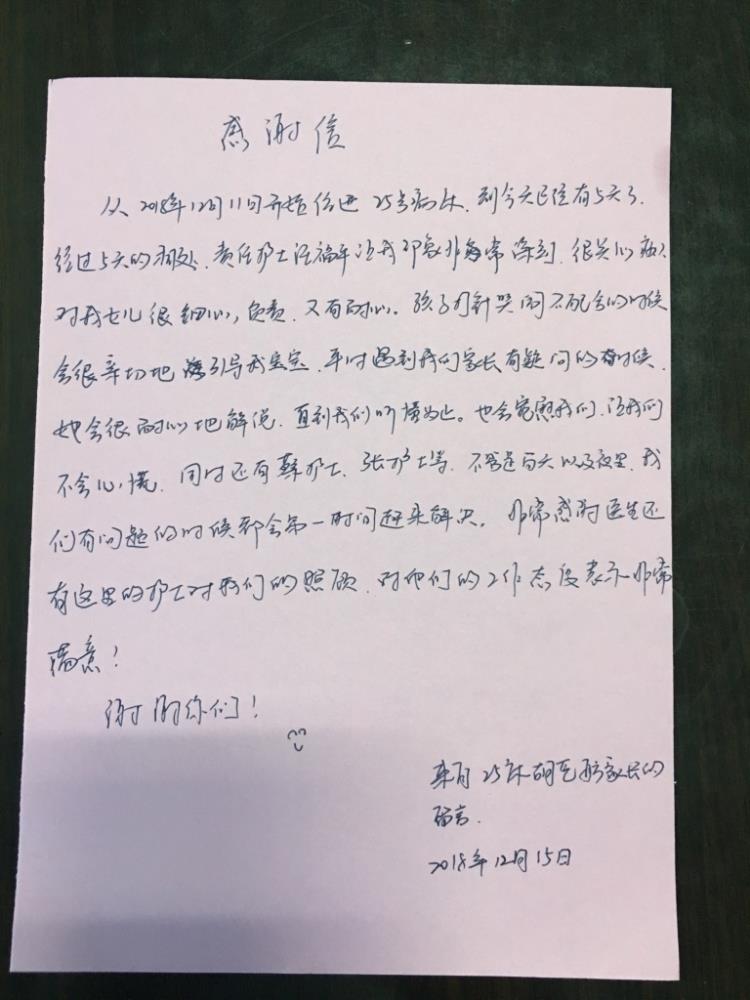 感谢信
从2018年12月11日开始住进25号病床.到今天已经有5天了.
经过5天的相处.责任护士汪福平让我印象非常深刻.很关心病人
对我女儿很细心,负责.又有耐心。孩子打针哭闹不配合的时候
会很亲切地引导我宝宝.平时遇到我们家长有疑问的时候.
她会很耐心地解说.直到我们听懂为止。也会宽慰我们.让我们
不会心慌.同时还有苏护士.张护士等.不管是白天以及夜里.我
们有问题的时候都会第一时间赶来解决。非常感谢医生还
有这里的护士对我们的照顾.对他们的工作态度表示非常
满意!
谢谢你们!
来自25床胡艺家长的
留言.
2018年12月15日